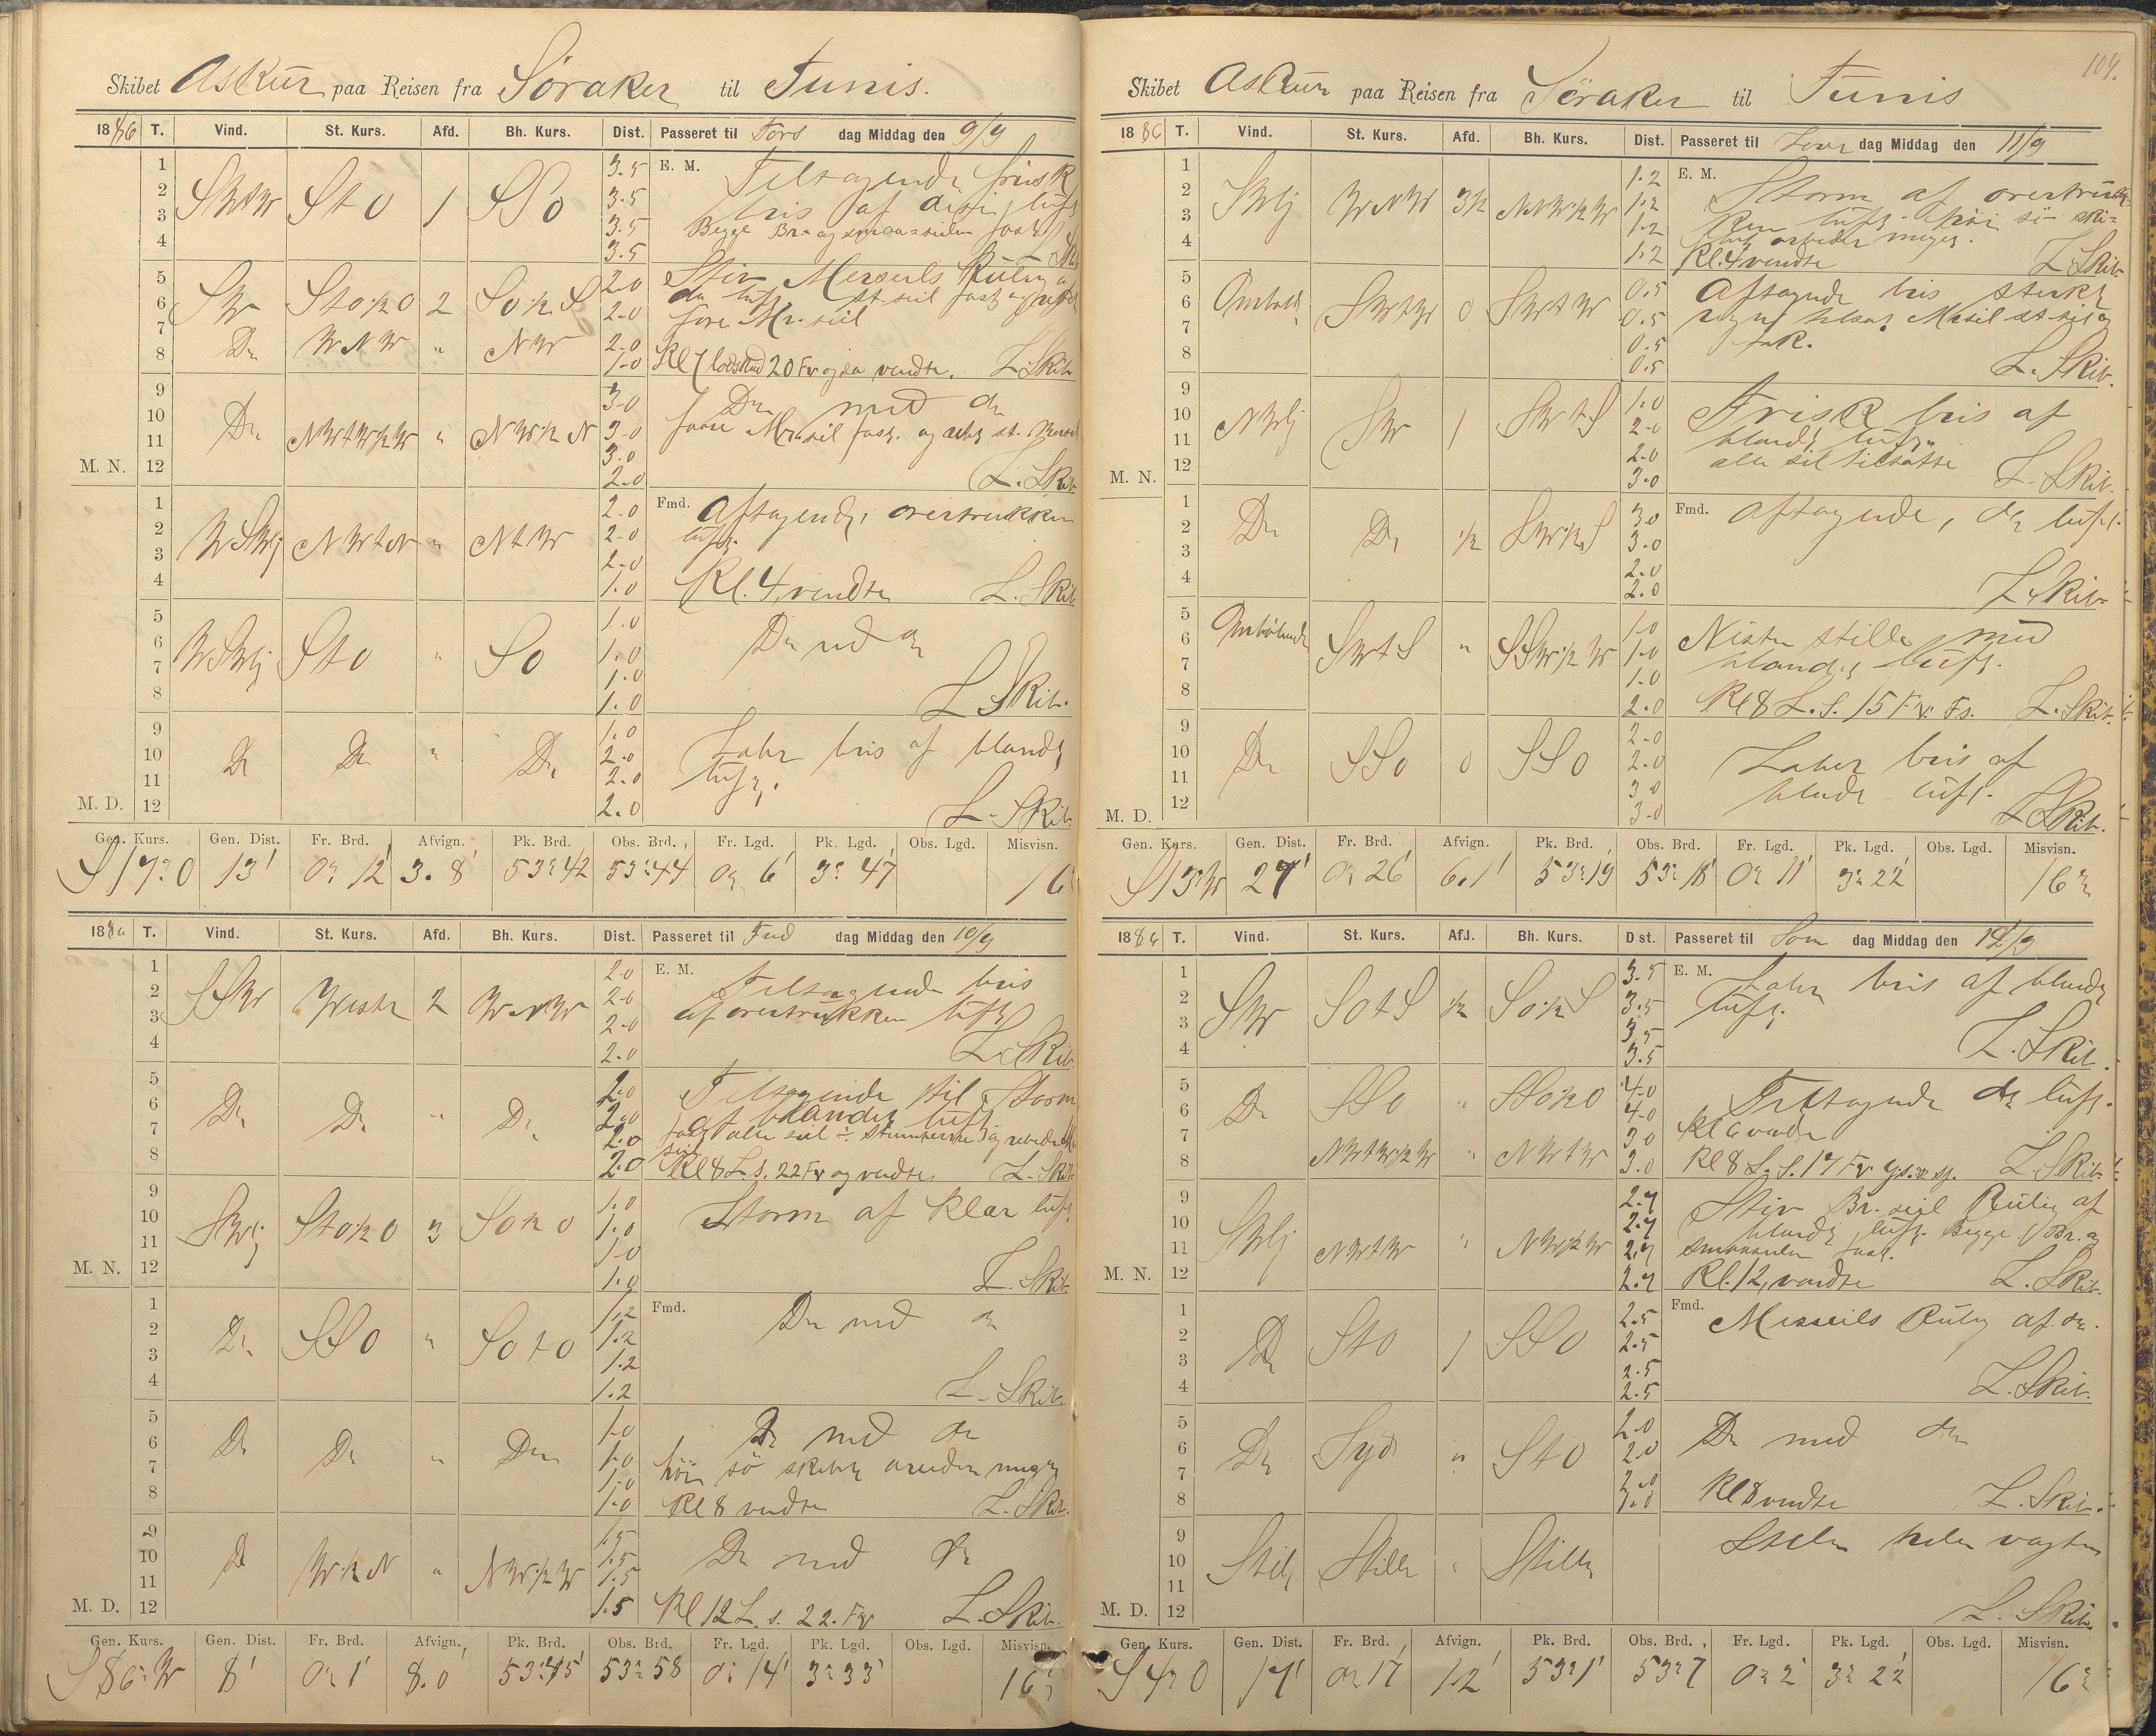 Skibet Askur paa Reisen fra Söraker til Tunis.
1886 T. Vind. St. Kurs. Afd. Bh. Kurs. Dist. Passeret til Tors dag Middag den 9/9
1 2 3 4 StO 1 SSO 3.5 3.5 3.5 3.5 E. M. Tiltagende frisk
bris af luft
Begge Br- og smaa-seilen fast
5 6 7 8 SW StO½O 2 SO½S 2.0 2.0 Stiv Merseils Kuling
luft St-seil fast og
fore Mr. seil
Do WNW " NW 2.0 1.0 Kl 7 lodskud 20 Fv og da vendte. L. Skib.
9 10 11 12 M. N. Do NWtW½W " NW½N 3.0 3.0 3.0 2.0 Do med do
Mr. seil fast. og st.
L. Skib.
1 2 3 4 WSWlj NWtN " NtW 2.0 2.0 2.0 1.0 Fmd. Aftagende, overtrukken
luft.
Kl. 4 vendte L. Skib
5 6 7 8 WSWlj StO " SO 1.0 1.0 1.0 1.0 Do med do
L Skib.
9 10 11 12 M. D. Do Do " Do 1.0 2.0 2.0 2.0 Laber bris af blandt
luft.
L. Skib.
Gen. Kurs. Gen. Dist. Fr. Brd. Afvign. Pk. Brd. Obs. Brd. Fr. Lgd. Pk. Lgd. Obs. Lgd. Misvisn.
S17°O 13' 0° 12' 3.8' 53° 42 53° 44 0° 6' 3° 47' 16°
1886 T. Vind. St. Kurs. Afd. Bh. Kurs. Dist. Passeret til Fred dag Middag den 10/9
1 2 3 4 SSW West 2 WNW 2.0 2.0 2.0 2.0 E. M. Tiltagende bris
af overtrukken luft
L Skib.
5 6 7 8 Do Do " Do 2.0 2.0 2.0 2.0 Tiltagende til Storm
af blandet luft
fast alle seil ÷ og
seil
Kl 8 L. s. 22 Fv og vendte L. Skib
9 10 11 12 M. N. SWlj StO½O 3 SO½O 1.0 1.0 1.0 1.0 Storm af klar luft
L. Skib.
1 2 3 4 Do SSO " SOtO 1.2 1.2 1.2 1.2 Fmd. Do med do
L. Skib.
5 6 7 8 Do Do " Do 1.0 1.0 1.0 1.0 Do med do
höi sö skibet arbeider meget
Kl 8 vendte L. Skib.
9 10 11 12 M. D. Do W½N " NW½W 1.5 1.5 1.5 1.5 Do med do
Kl 12 L. s. 22. Fv L. Skib.
Gen. Kurs. Gen. Dist. Fr. Brd. Afvign. Pk. Brd. Obs. Brd. Fr. Lgd. Pk. Lgd. Obs. Lgd. Misvisn.
S86°W 8' 0° 1' 8.0' 53° 45' 53° 58 0° 14' 3° 33' 16°
104.
Skibet Askur paa Reisen fra Söraker til Tunis
1886 T. Vind. St. Kurs. Afd. Bh. Kurs. Dist. Passeret til Löver dag Middag den 11/9
1 2 3 4 SWlj WNW 3½ NNW½W 1.2 1.2 1.2 1.2 E. M. Storm af overtruk-
ken luft. höi sö ski-
bet arbeider meget.
Kl. 4 vendte L Skib
5 6 7 8 Omböl. SWtW 0 SWtW 0.5 0.5 0.5 0.5 Aftagende bris sterkt
regn
L. Skib.
9 10 11 12 M. N. NWlj SW 1 SWtS 1.0 2.0 2.0 3.0 Frisk bris af
blandt luft
alle seil tilsatte
L. Skib.
1 2 3 4 Do Do ½ SW½S 3.0 3.0 2.0 2.0 Fmd. Aftagende, do luft.
L Skib
5 6 7 8 Ombölende SWtS " SSW½W 1.0 1.0 1.0 2.0 Nesten stille med
blandet luft.
Kl 8 L. S. 15 Fv. Fs. L. Skib.
9 10 11 12 M. D. Do SSO 0 SSO 2.0 2.0 3.0 3.0 Laber bris af
blandt luft.
L Skib.
Gen. Kurs. Gen. Dist. Fr. Brd. Afvign. Pk. Brd. Obs. Brd. Fr. Lgd. Pk. Lgd. Obs. Lgd. Misvisn.
S13°W 27' 0° 26' 6.1' 53° 19 53° 18' 0° 11' 3° 22' 16°
1886 T. Vind. St. Kurs. Afd. Bh. Kurs. Dist. Passeret til Sön dag Middag den 12/9
1 2 3 4 SW SOtS ½ SO½S 3.5 3.5 3.5 3.5 E. M. Laber bris af blandt
luft.
L. Skib.
5 6 7 8 Do SSO " SSO½O 4.0 4.0 Tiltagende do luft.
Kl 6 vendte
NWtW½W " NWtW 3.0 3.0 Kl 8 L. S. 17 Fv. L. Skib.
9 10 11 12 M. N. SWlj NWtW " NW½W 2.7 2.7 2.7 2.7 Stiv Br. seil Kuling af
blandt luft. Begge Br. og
smaaseilen fast.
Kl. 12, vendte L. Skib.
1 2 3 4 Do StO 1 SSO 2.5 2.5 2.5 2.5 Fmd. Merseils Kuling af do.
L. Skib.
5 6 7 8 Do Syd " StO 2.0 2.0 2.0 1.0 Do med do
Kl 8 vendte L. Skib.
9 10 11 12 M. D. Stille Stille " Stille Stille hele vagten
L. Skib.
Gen. Kurs. Gen. Dist. Fr. Brd. Afvign. Pk. Brd. Obs. Brd. Fr. Lgd. Pk. Lgd. Obs. Lgd. Misvisn.
S4°O 17' 0° 17 1.2' 53° 1' 53° 7 0° 2' 3° 22' 16°